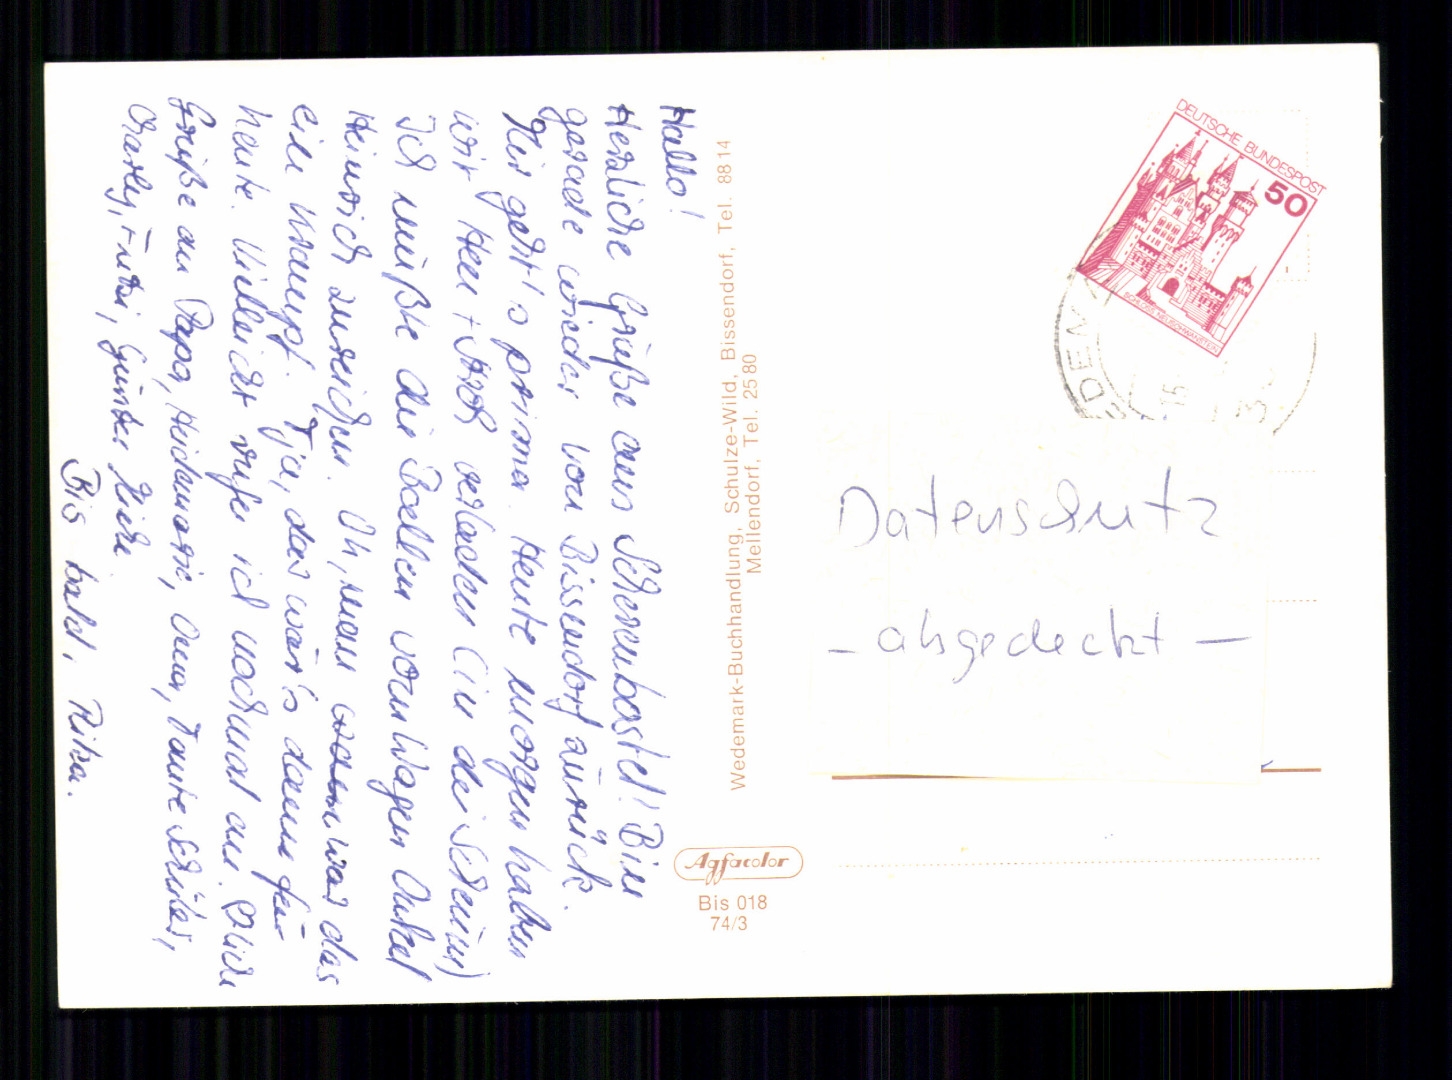 Hallo!
Herzliche Grüße aus Scherenbostel! Bin
gerade wieder von Bissendorf zurück.
Mir geht's prima. Heute morgen haben
wir Heu + Stroh verladen (in die Scheune)
Ich mußte die Ballen vom Wagen Onkel
Heinrich zureichen. Oh, man war das
ein Krampf. Tja, das wär's dann für
heute. Vielleicht rufe ich nochmal an. Liebe
Grüße an Papa, Heidemarie, Oma, Tante
Charley, Günter
Bis bald, Rita.
Wedemark-Buchhandlung, Schulze-Wild, Bissendorf, Tel. 88 14
Mellendorf, Tel. 25 80
Agfacolor
Bis 018
74/3
DEUTSCHE BUNDESPOST
50
SCHLOSS NEUSCHWANSTEIN
Datenschutz
- abgedeckt -